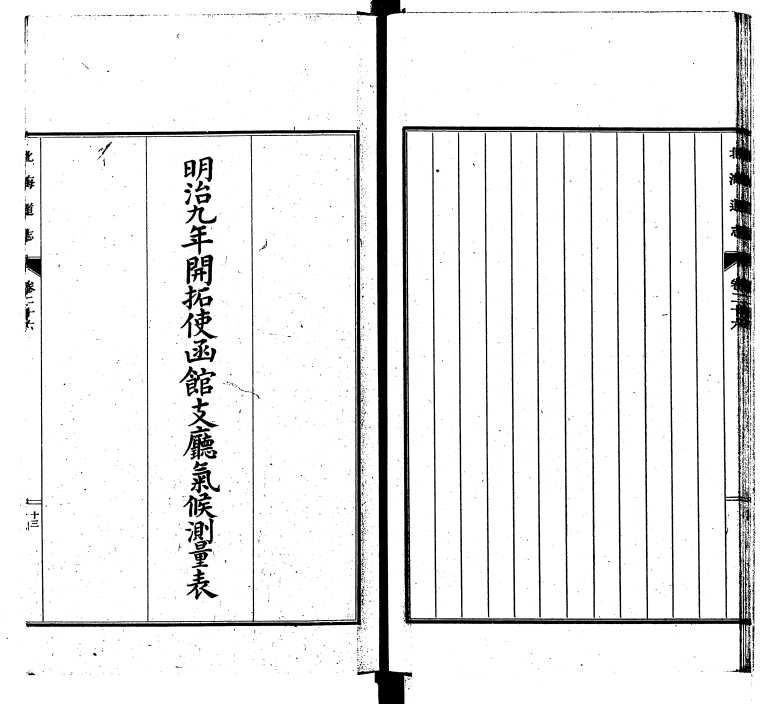 北海道志
卷二十六
明治九年開拓使函館支廳氣候測量表
北海道志
卷二十六
十三